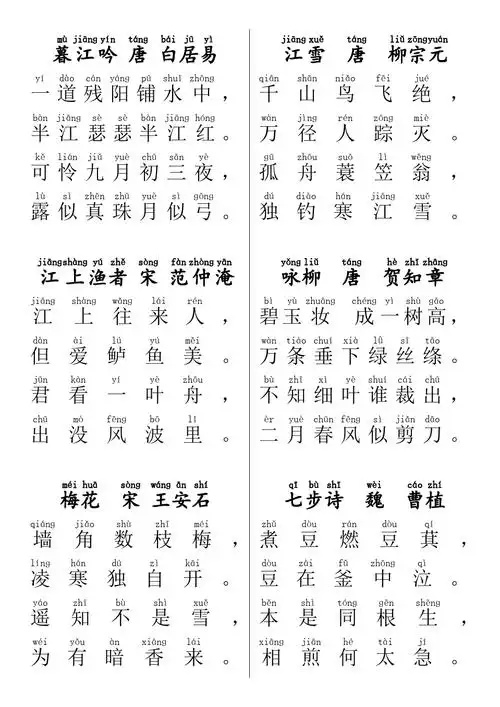 mù jiāng yín táng bái jū yì
暮江吟 唐 白居易
yí dào cán yáng pū shuǐ zhōng
一道残阳铺水中，
bàn jiāng sè sè bàn jiāng hóng
半江瑟瑟半江红。
kě lián jiǔ yuè chū sān yè
可怜九月初三夜，
lù sì zhēn zhū yuè sì gōng
露似真珠月似弓。
jiāng shàng yú zhě sòng fàn zhòng yān
江上渔者 宋 范仲淹
jiāng shàng wǎng lái rén
江上往来人，
dàn ài lú yú měi
但爱鲈鱼美。
jūn kàn yí yè zhōu
君看一叶舟，
chū mò fēng bō lǐ
出没风波里。
méi huā sòng wáng ān shí
梅花 宋 王安石
qiáng jiǎo shù zhī méi
墙角数枝梅，
líng hán dú zì kāi
凌寒独自开。
yáo zhī bú shì xuě
遥知不是雪，
wéi yǒu àn xiāng lái
为有暗香来。
jiāng xuě táng liǔ zōng yuán
江雪 唐 柳宗元
qiān shān niǎo fēi jué
千山鸟飞绝，
wàn jìng rén zōng miè
万径人踪灭。
gū zhōu suō lì wēng
孤舟蓑笠翁，
dú diào hán jiāng xuě
独钓寒江雪。
yǒng liǔ táng hè zhī zhāng
咏柳 唐 贺知章
bì yù zhuāng chéng yí shù gāo
碧玉妆 成一树高，
wàn tiáo chuí xià lǜ sī tāo
万条垂下绿丝绦。
bù zhī xì yè shuí cái chū
不知细叶谁裁出，
èr yuè chūn fēng sì jiǎn dāo
二月春风似剪刀。
qī bù shī wèi cáo zhí
七步诗 魏 曹植
zhǔ dòu rán dòu qí
煮豆燃豆萁，
dòu zài fǔ zhōng qì
豆在釜中泣。
běn shì tóng gēn shēng
本是同根生，
xiāng jiān hé tài jí
相煎何太急。